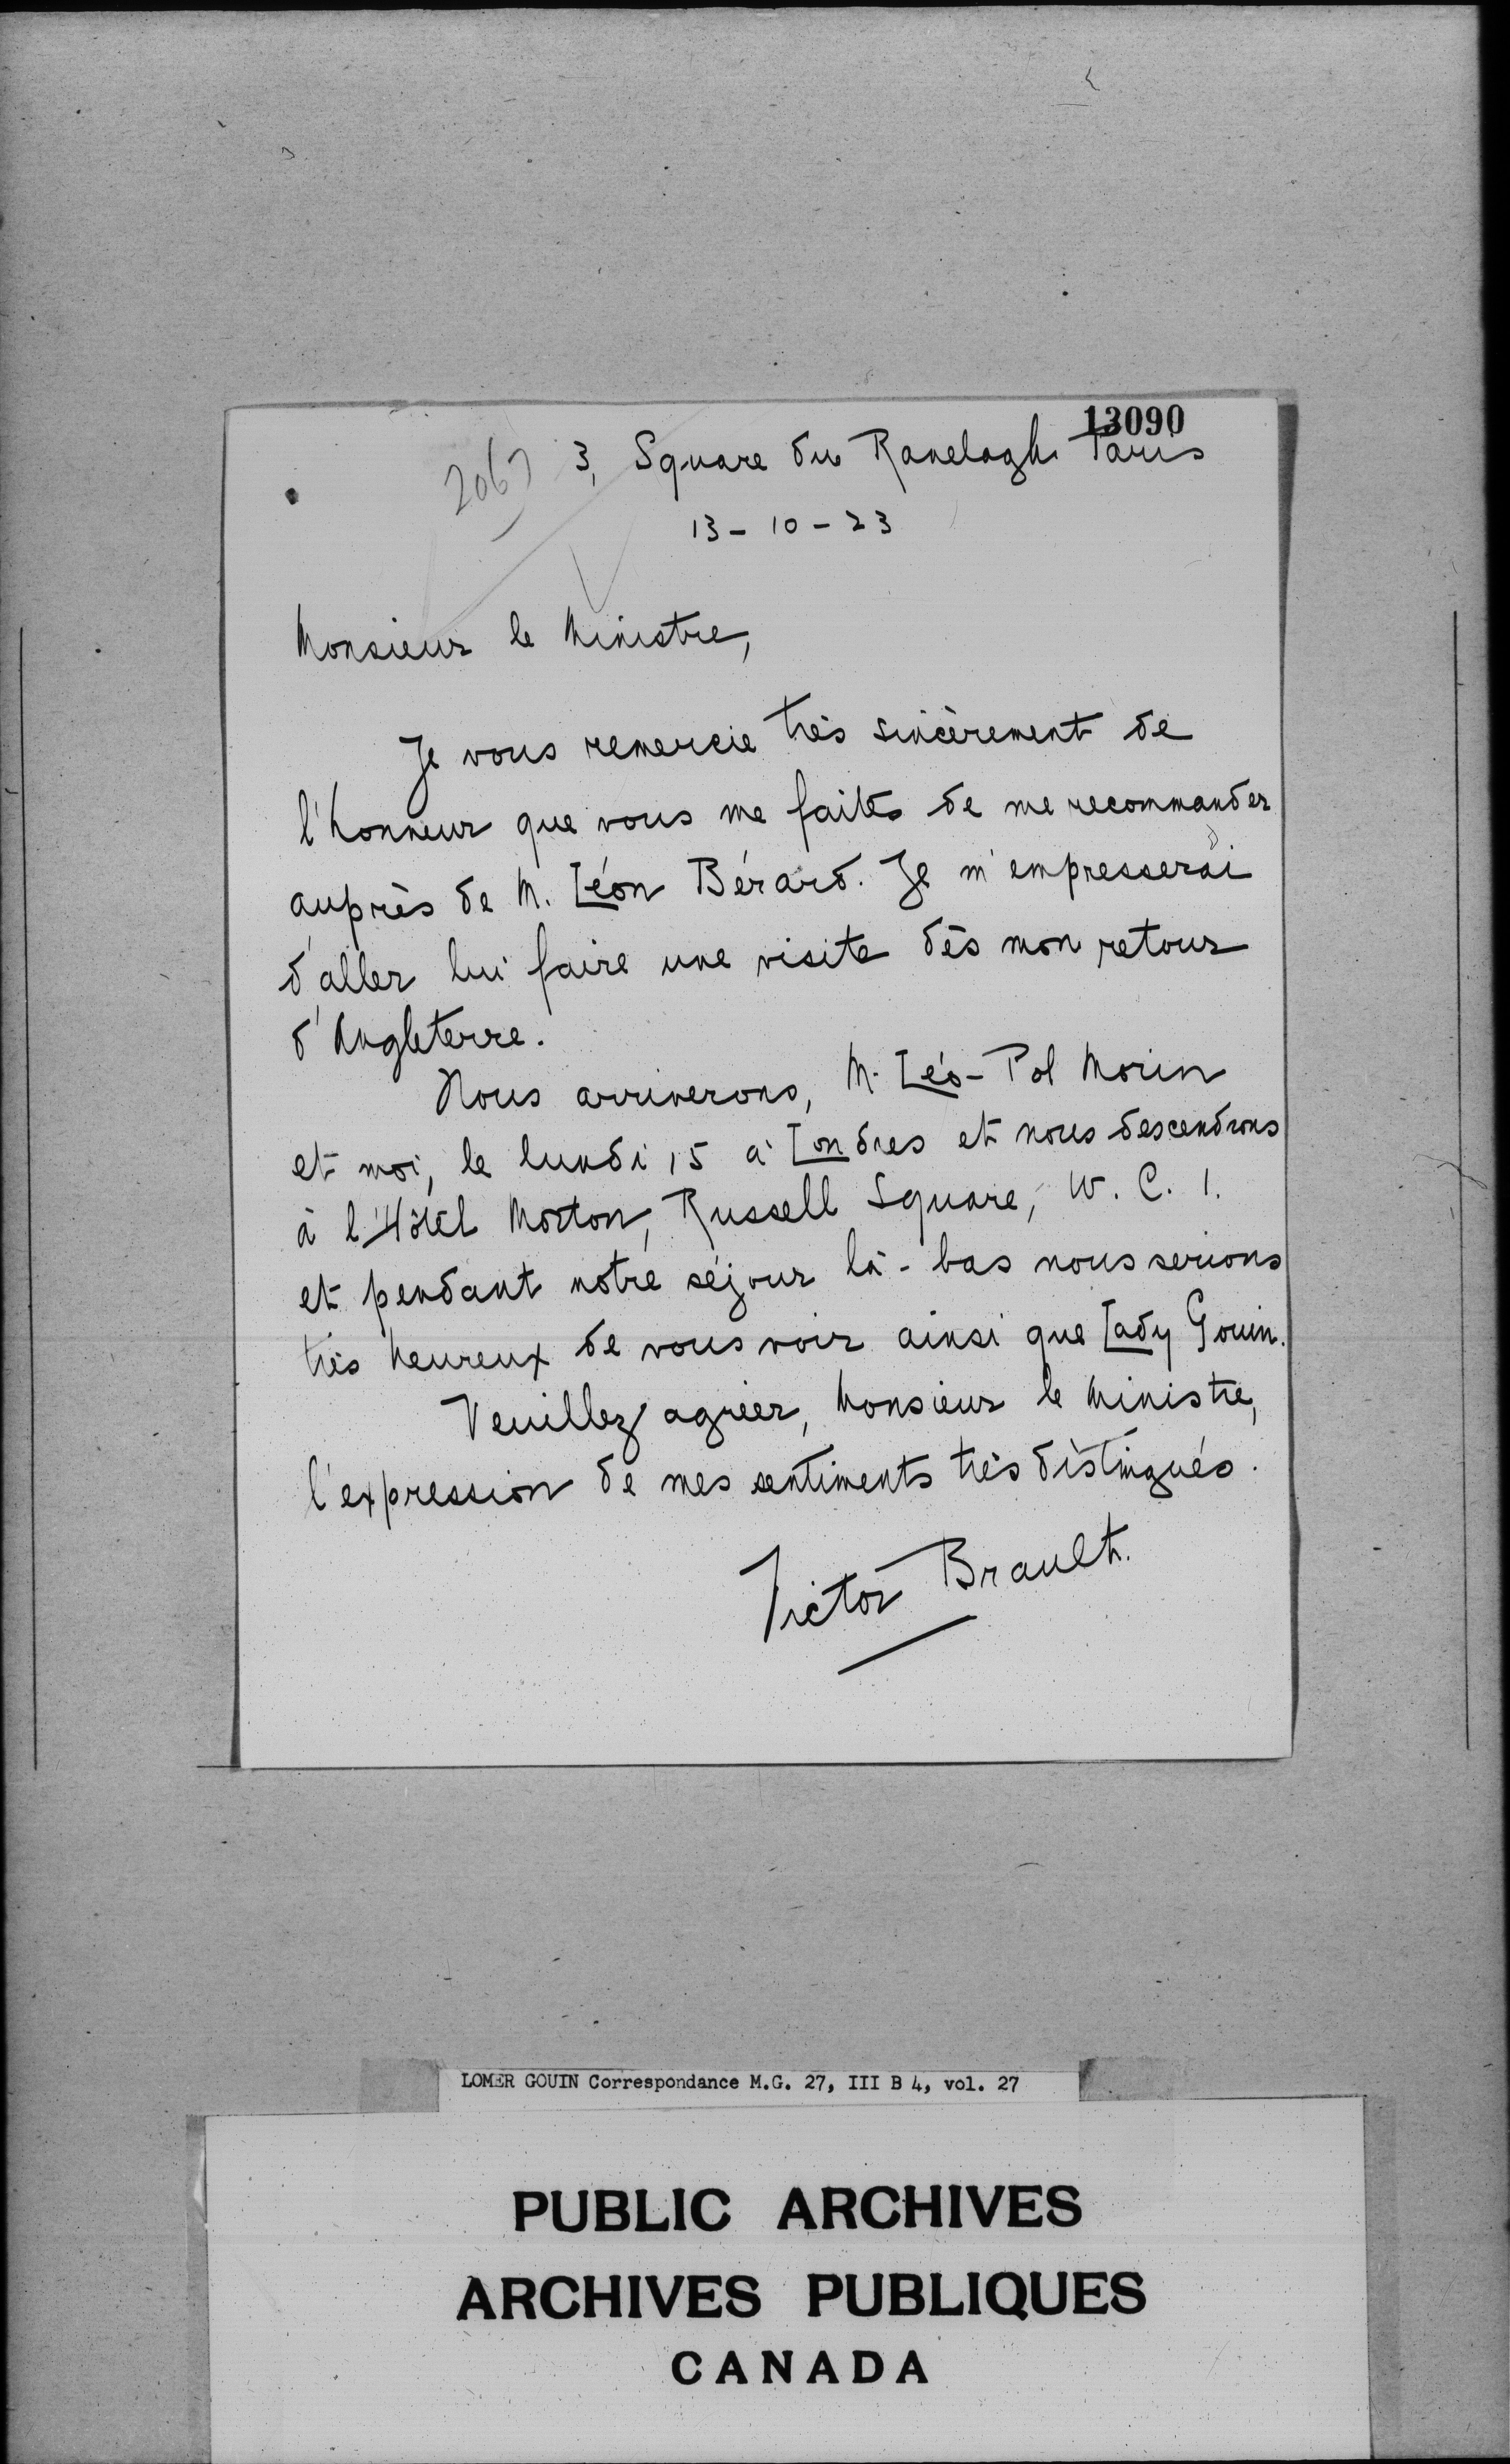 13090
2067
3, Square du Ranelagh Paris
13-10-23
Monsieur le Ministre,
Je vous remercie très sincèrement de
l'honneur que vous me faites de me recommander
auprès de M. Léon Bérard. Je m'empresserai
d'aller lui faire une visite dès mon retour
d'Angleterre.
Nous arriverons, M. Léo-Pol Morin
et moi, le lundi 15 à Londres et nous descendrons
à l'Hôtel Morton, Russell Square, W. C. 1.
et pendant notre séjour là-bas nous serions
très heureux de vous voir ainsi que Lady Gouin.
Veuillez agréer, Monsieur le Ministre,
l'expression de mes sentiments très distingués.
Victor Brault.
LOMER GOUIN Correspondance M.G. 27, III B 4, vol. 27
PUBLIC ARCHIVES
ARCHIVES PUBLIQUES
CANADA